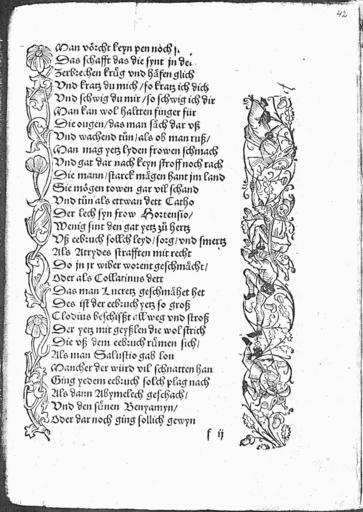 42
Man vörcht keyn pen noch
Das schafft das die synt jn de
Zerbrechen krüg vnd häfen glich
Vnd kratz du mich / so kratz ich dich
Vnd schwig du mir / so schwig ich dir
Man kan wol haltten finger für
Die ougen / das man säch dar vß
Vnd wachend tün / als ob man ruß /
Man mag yetz lyden frowen schmach
Vnd gat dar nach keyn stroff noch rach
Die mann / starck mägen hant jm land
Sie mögen towen gar vil schand
Vnd tün als ettwan dett Catho
Der lech syn frow Hortensio /
Wenig sint den gat yetz zü hertz
Vß eebruch sollich leyd / sorg / vnd smertz
Als Atrydes strafften mit recht
Do jn jr wiber worent geschmächt /
Oder als Collatinus dett
Das man Lucretz geschmähet het
Des ist der eebruch yetz so groß
Clodius beschißt all weg vnd stroß
Der yetz mit geyßlen die wol strich
Die vß dem eebruch rümen sich /
Als man Salustio gab lon
Mancher der würd vil schnatten han
Ging yedem eebruch solch plag nach
Als dann Abymelech geschach /
Vnd den sünen Benyamyn /
Oder dar noch ging sollich gewyn
f ij